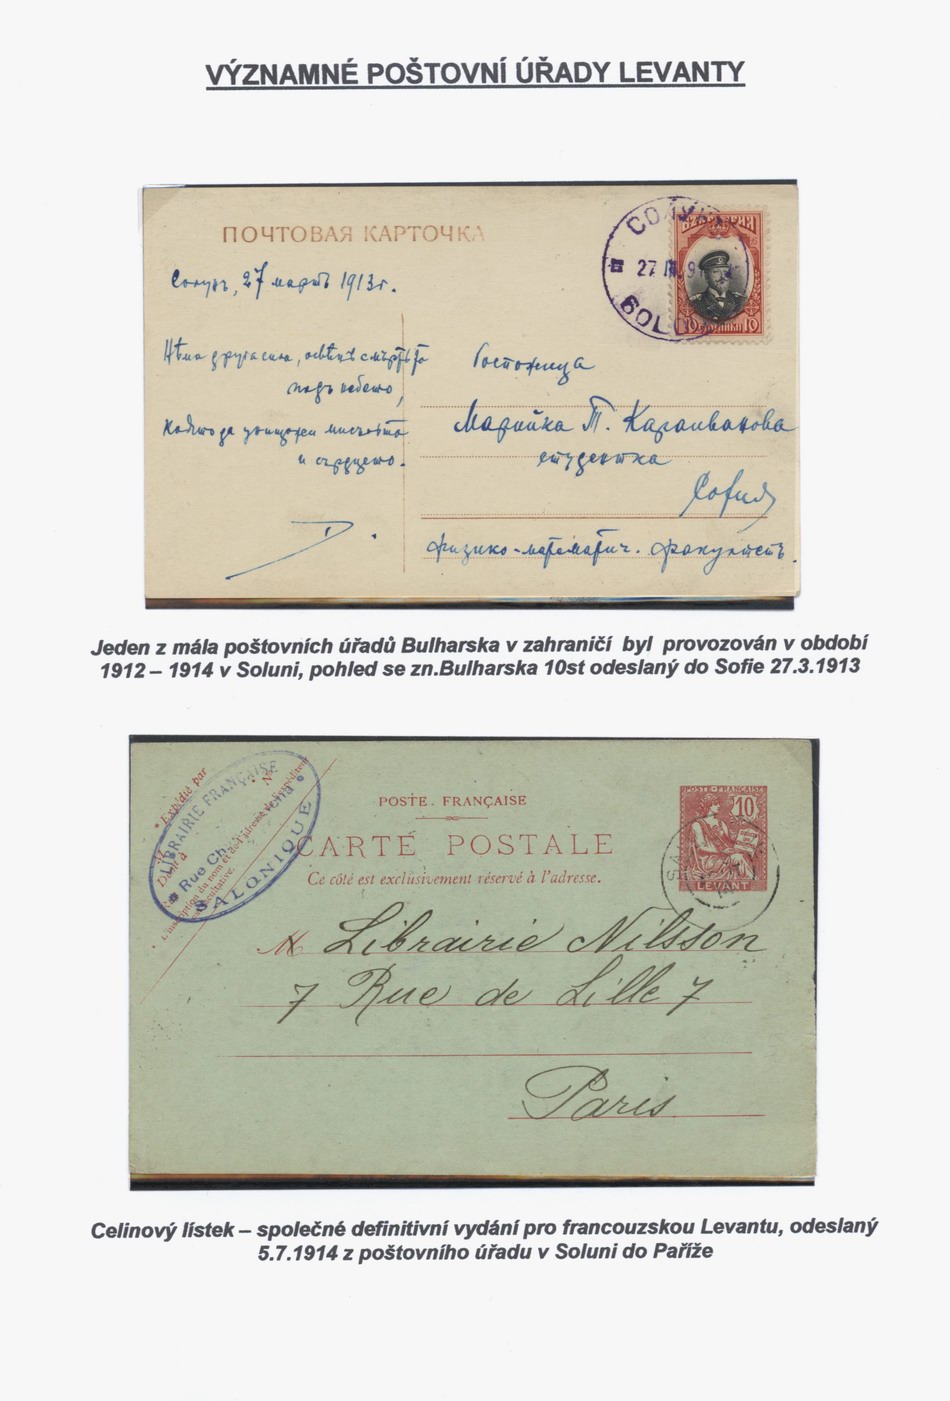 VÝZNAMNÉ POŠTOVNÍ ÚŘADY LEVANTY
ПОЧТОВАЯ КАРТОЧКА
27
БЪЛГАРИЯ
10 10
Солунъ, 27 мартъ 1913 г.
Нѣма друга сила, освѣнъ смъртьта
подъ небето,
която да унищожи мисъльта
и сърдцето.
Госпожица
Марийка Т. Караиванова
студентка
София
физико-математич. факултетъ.
Jeden z mála poštovních úřadů Bulharska v zahraničí byl provozován v období
1912 – 1914 v Soluni, pohled se zn.Bulharska 10st odeslaný do Sofie 27.3.1913
LIBRAIRIE FRANÇAISE
Rue
SALONIQUE
Expédié par
POSTE FRANÇAISE
CARTE POSTALE
Ce côté est exclusivement réservé à l'adresse.
POSTE FRANÇAISE
10
LEVANT
M Librairie Nilsson
7 Rue de Lille 7
Paris
Celinový lístek – společné definitivní vydání pro francouzskou Levantu, odeslaný
5.7.1914 z poštovního úřadu v Soluni do Paříže